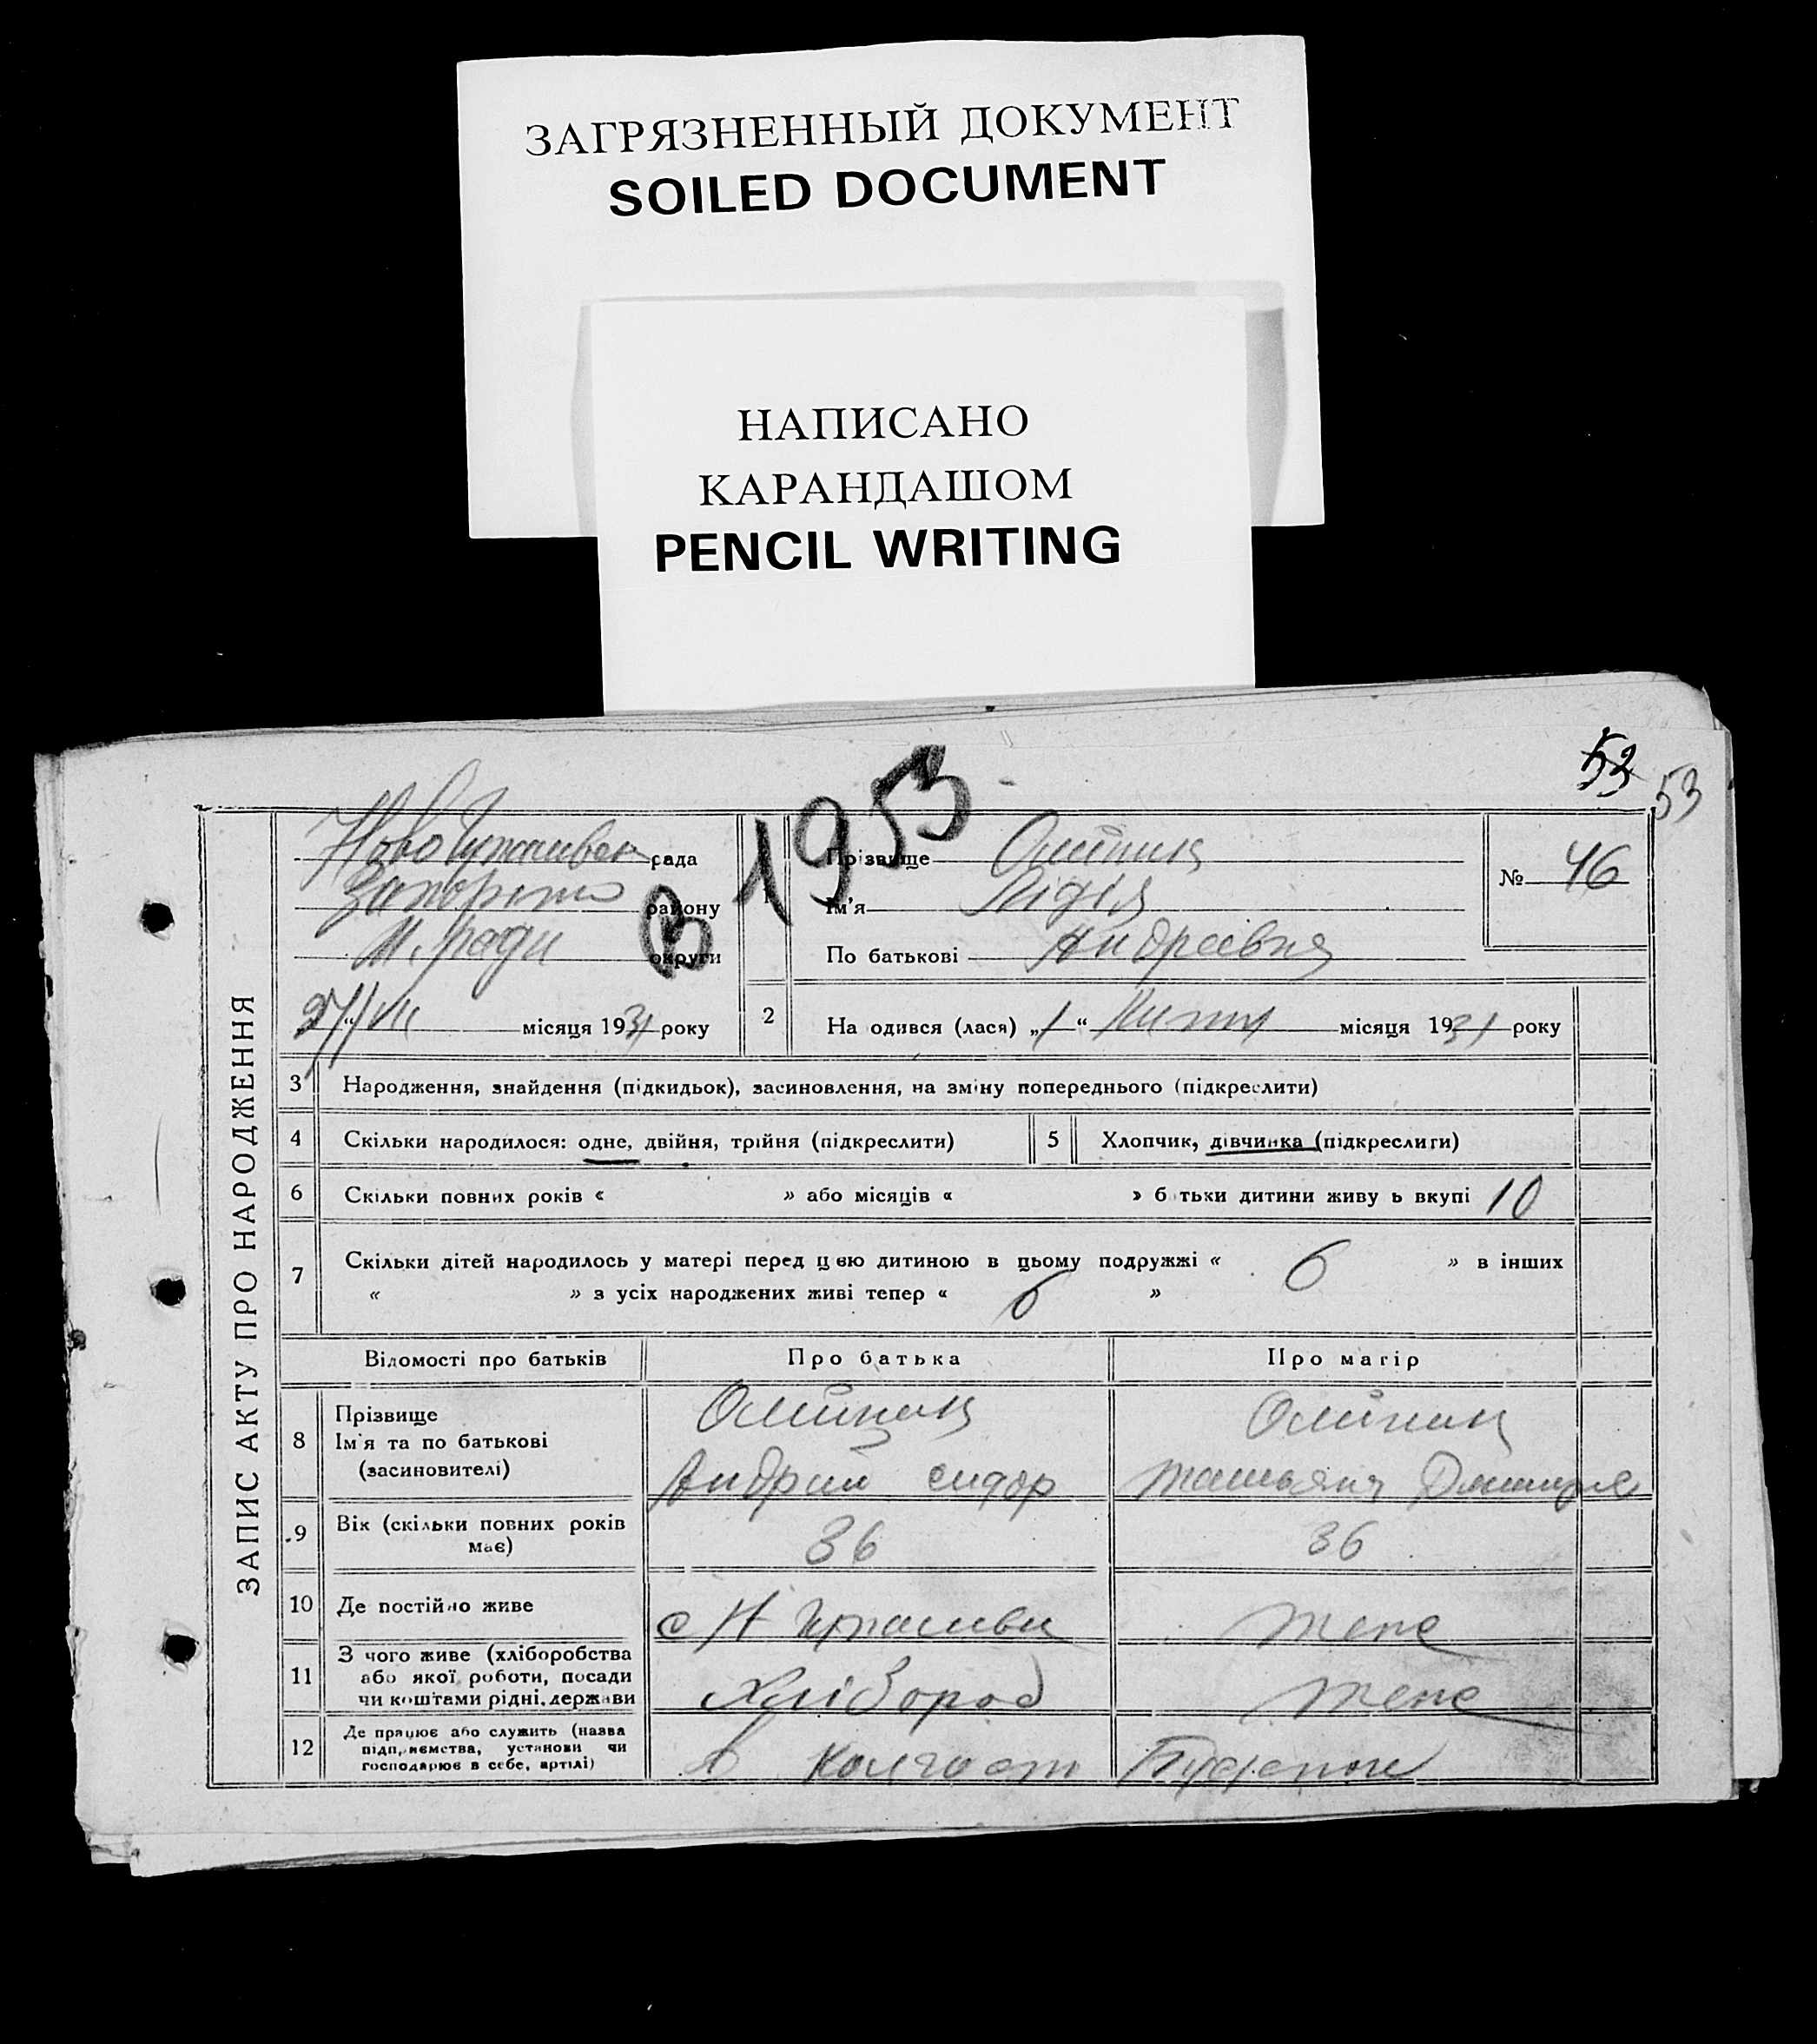 ЗАГРЯЗНЕННЫЙ ДОКУМЕНТ
SOILED DOCUMENT
НАПИСАНО
КАРАНДАШОМ
PENCIL WRITING
53
53
ЗАПИС АКТУ ПРО НАРОДЖЕННЯ
рада
району
М. Ради округи
27/VII місяця 1931 року
1953
В
1
Прізвище Олійник
Ім'я Лідія
По батькові Андреівна
№ 46
2 На одився (лася) „1“ місяця 1931 року
3 Народження, знайдення (підкидьок), засиновлення, на зміну попереднього (підкреслити)
4 Скільки народилося: одне, двійня, трійня (підкреслити)
5 Хлопчик, дівчинка (підкреслиги)
6 Скільки повних років « » або місяців « » б тьки дитини живу ь вкупі 10
7 Скільки дітей народилось у матері перед цєю дитиною в цьому подружжі « 6 » в інших
« » з усіх народжених живі тепер « 6 »
Відомості про батьків Про батька Про матір
8 Прізвище
Ім'я та по батькові
(засиновителі)
Олійник
Андрий сидор
Олійник
татьяна Дмитрие
9 Вік (скільки повних років
має)
36 36
10 Де постійно живе
с Н тоже
11 З чого живе (хліборобства
або якої роботи, посади
чи коштами рідні, держави
Хлібороб тоже
12 Де працює або служить (назва
підприємства, установи чи
господарює в себе, артілі)
в Колгосп